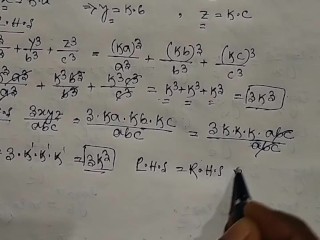 ⇒ y = K·b , z = K·c
H·S
x³/a³ + y³/b³ + z³/c³ = (Ka)³/a³ + (Kb)³/b³ + (Kc)³/c³
+ K³b³/b³ + K³c³/c³ = K³+K³+K³ = 3K³
3xyz/abc = 3·Ka·Kb·Kc/abc = 3K·K·K·abc/abc
= 3·K·K·K = 3K³ L·H·S = R·H·S